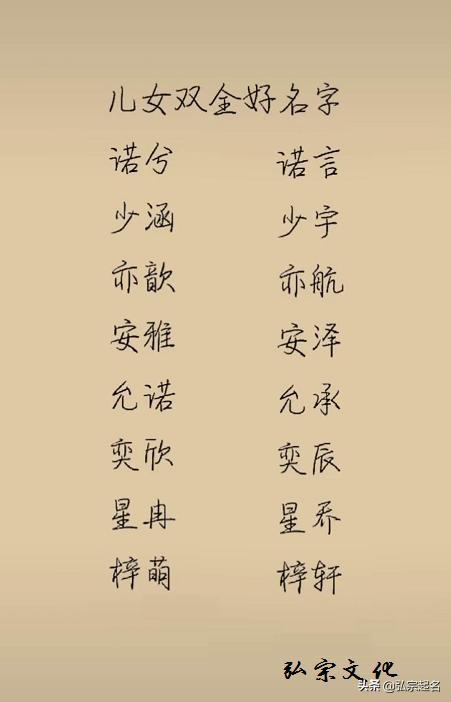 儿女双全好名字
诺兮 诺言
少涵 少宇
亦歆 亦航
安雅 安泽
允诺 允承
奕欣 奕辰
星冉 星乔
梓萌 梓轩
弘宗文化
头条 @弘宗起名